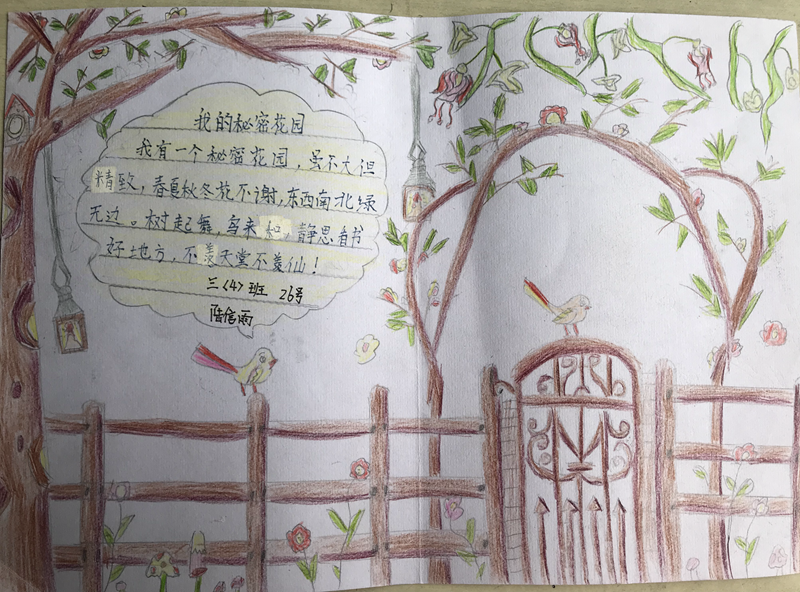 我的秘密花园
我有一个秘密花园，虽不大但
精致，春夏秋冬花不谢，东西南北绿
无边。树起舞，鸟来和，静思看书
好地方，不羡天堂不羡仙！
三〈4〉班 26号
陆信雨